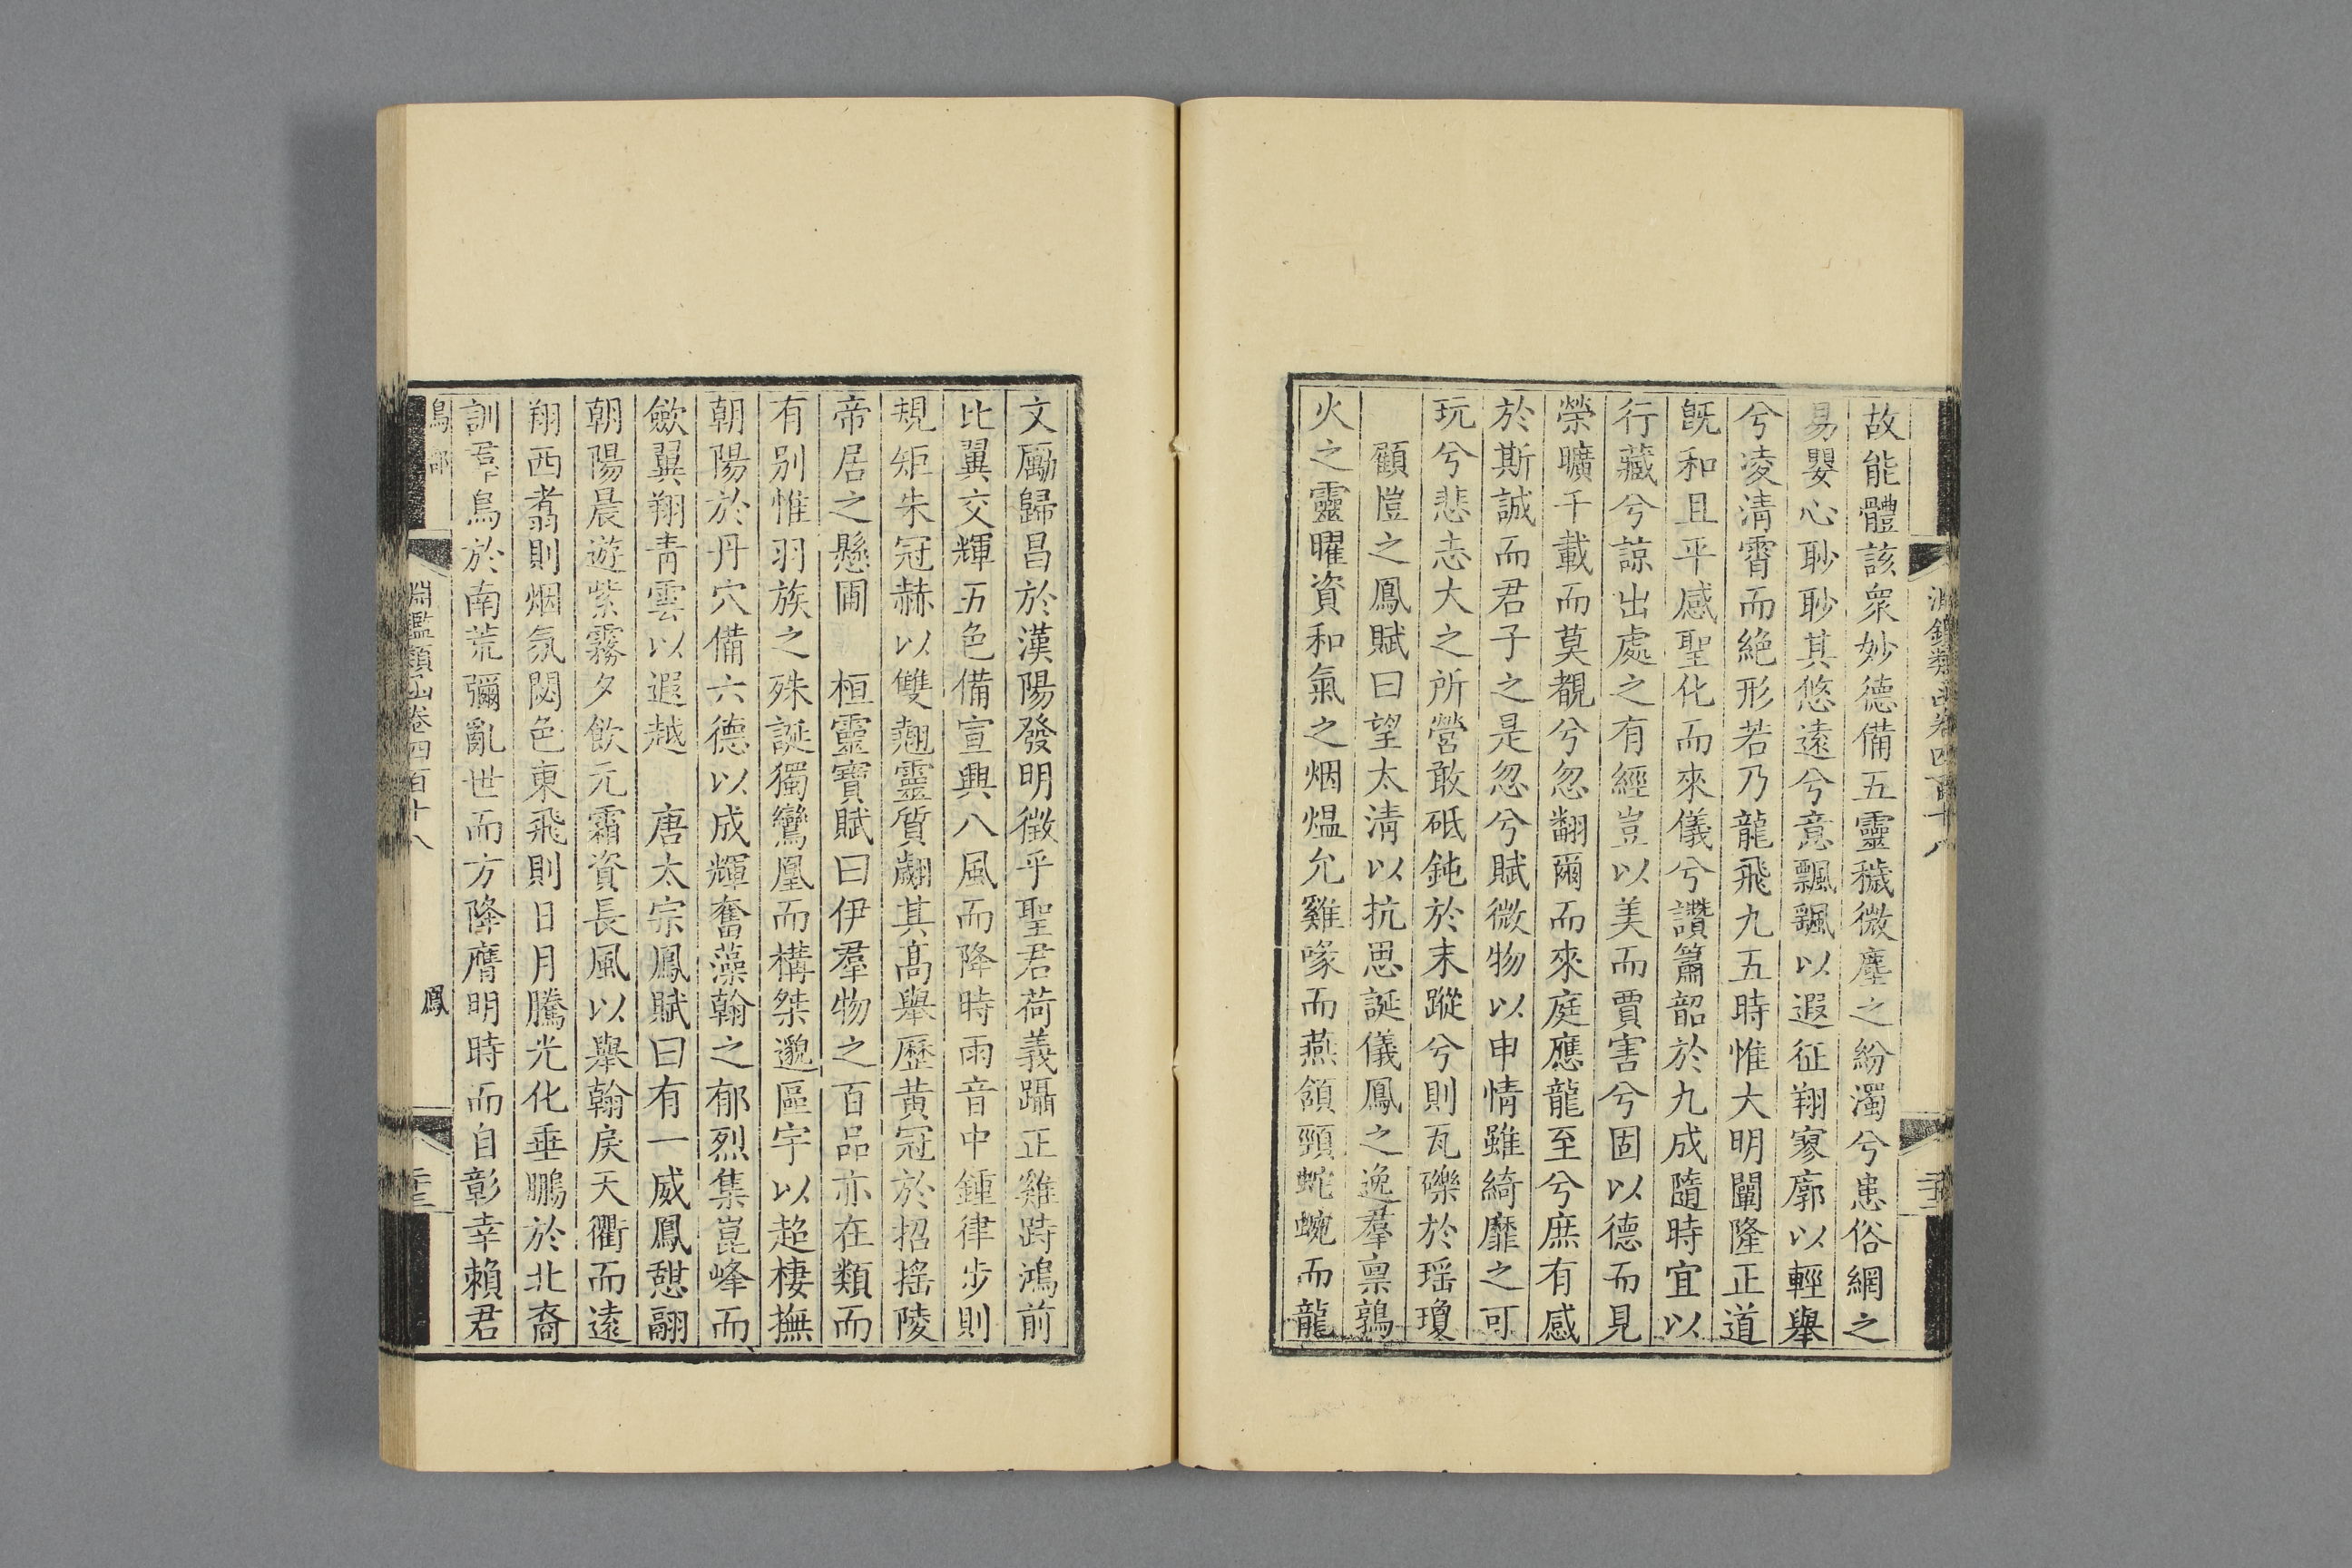 故能體該衆妙德備五靈穢微塵之紛濁兮患俗網之
易嬰心眇眇其悠遠兮意飄飄以遐征翔寥廓以輕舉
兮凌清霄而絶形若乃龍飛九五時惟大明闡隆正道
旣和且平感聖化而來儀兮讚簫韶於九成隨時宜以
行藏兮諒出處之有經豈以美而賈害兮固以德而見
榮曠千載而莫覩兮忽翻爾而來庭應龍至兮庶有感
於斯誠而君子之是忽兮賦微物以申情雖綺靡之可
玩兮悲志大之所營敢砥鈍於末蹤兮則瓦礫於瑶瓊
顧愷之鳳賦曰望太清以抗思誕儀鳳之逸羣禀鶉
火之靈曜資和氣之烟熅允雞喙而燕頷頸蛇蜿而龍
文勵歸昌於漢陽發明徵乎聖君荷義躡正雞跱鴻前
比翼交輝五色備宣興八風而降時雨音中鍾律步則
規矩朱冠赫以雙翹靈質翽其高舉歷黄冠於招摇陵
帝居之懸圃 桓靈寶賦曰伊羣物之百品亦在類而
有别惟羽族之殊誕獨鸞凰而構桀邈區宇以超棲撫
朝陽於丹穴備六德以成輝奮藻翰之郁烈集崑峰而
歛翼翔青雲以遐越 唐太宗鳳賦曰有一威鳳憩翮
朝陽晨遊紫霧夕飲元霜資長風以舉翰戾天衢而遠
翔西翥則烟氛閟色東飛則日月騰光化垂鵬於北裔
訓羣鳥於南荒彌亂世而方降膺明時而自彰幸賴君
鳥部 淵鑑類函卷四百十八 鳳